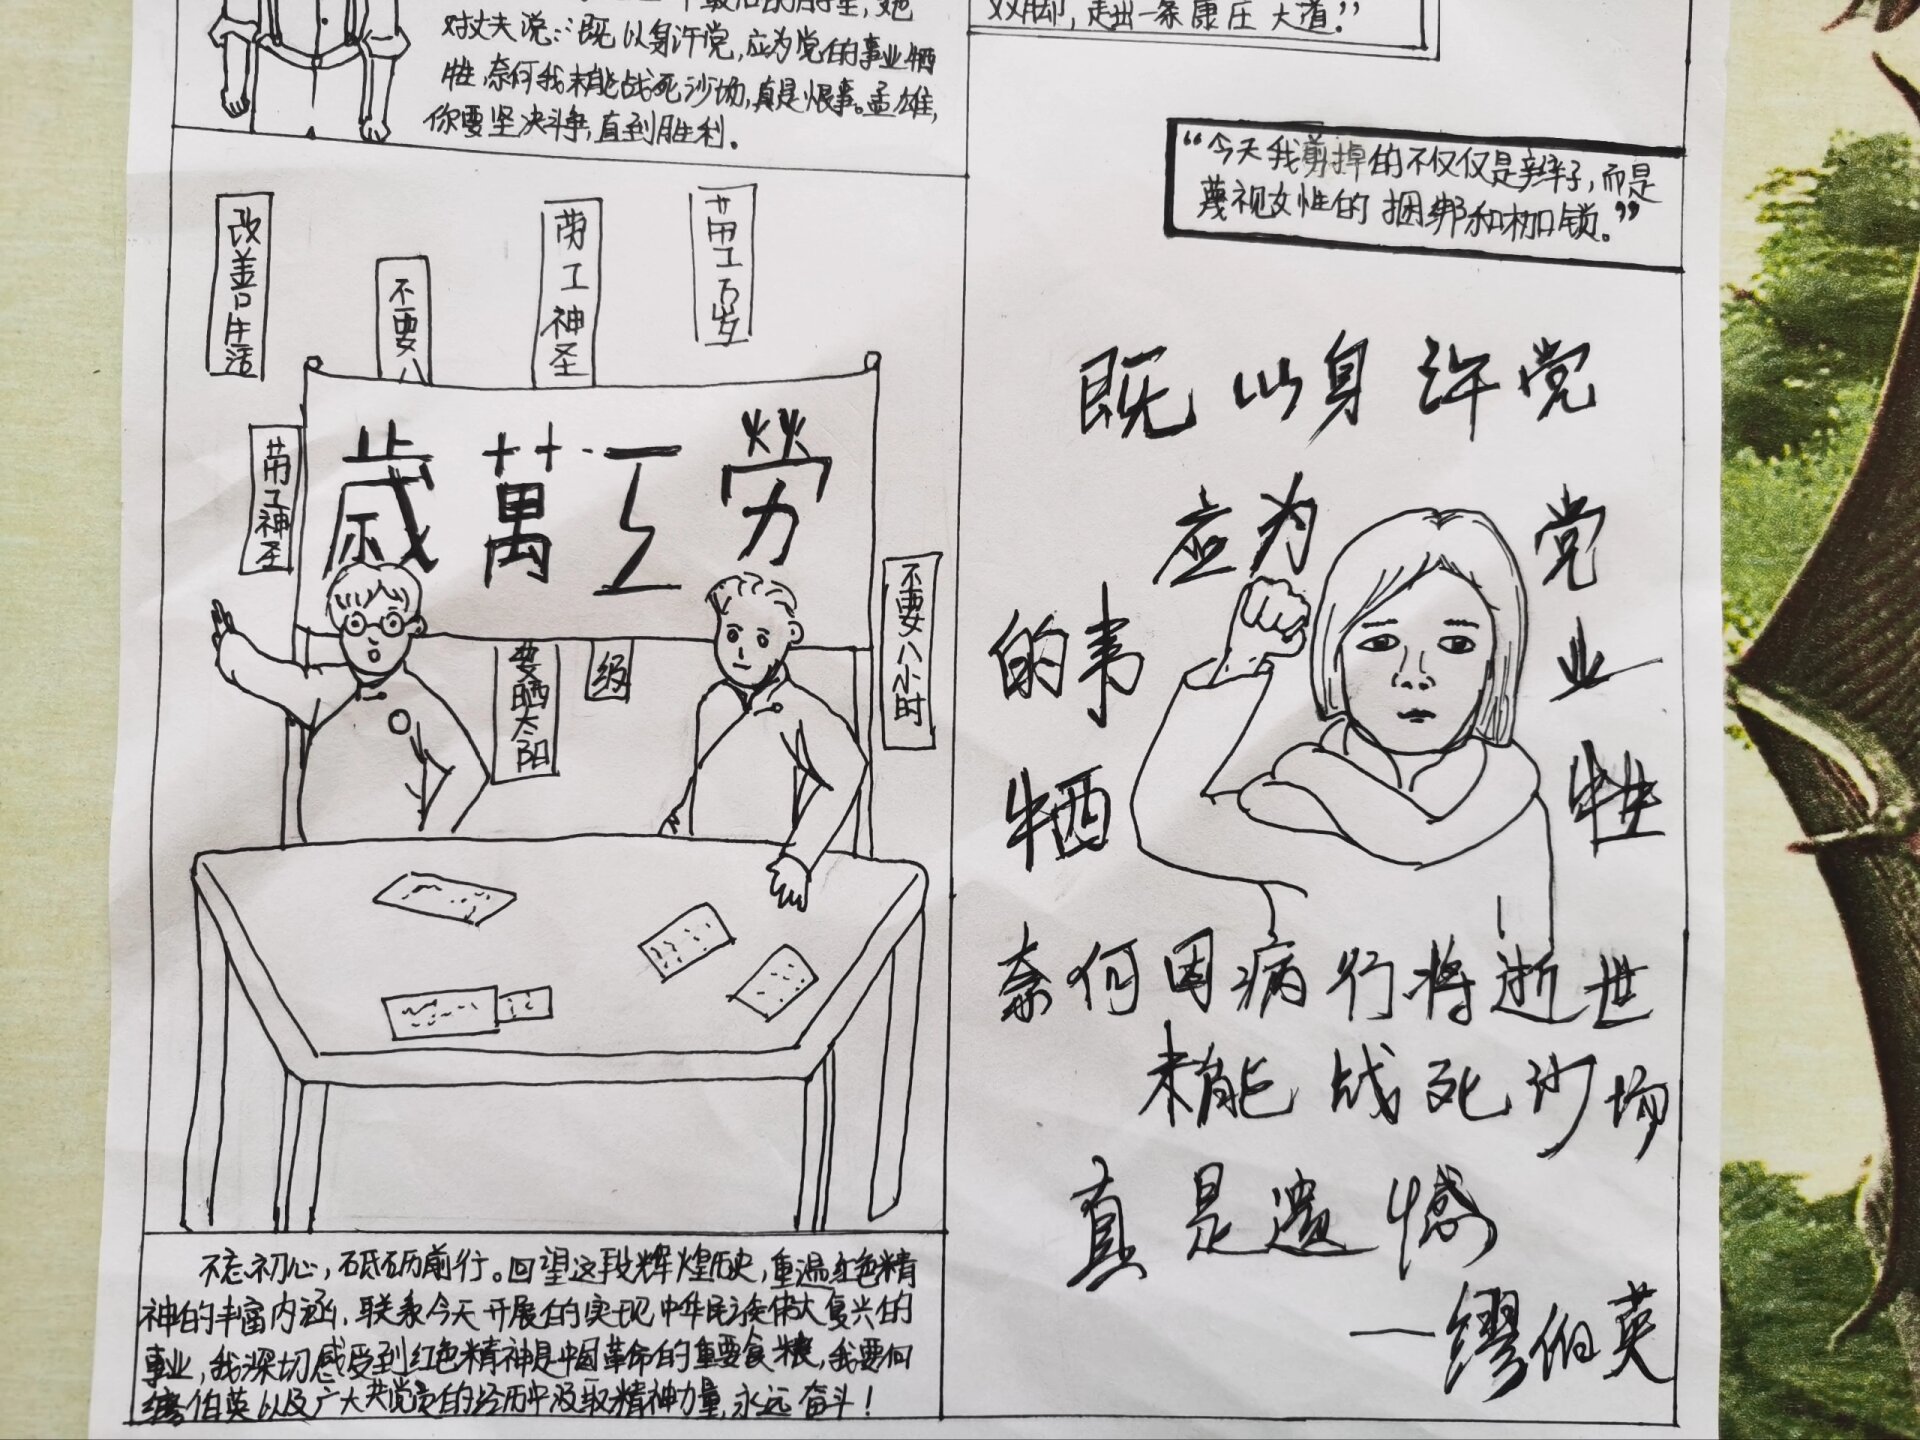 对丈夫说：既以身许党，应为党的事业牺
牲，奈何我未能战死沙场，真是恨事。孟雄，
你要坚决斗争，直到胜利。
双脚，走出一条康庄大道！”
“今天我剪掉的不仅仅是辫子，而是
蔑视女性的捆绑和枷锁。”
改善生活
不要八
劳工神圣
劳工万岁
劳工神圣
歲萬工勞
要晒太阳
级
不要八小时
既以身许党
应为党
的事业
牺牲
奈何因病行将逝世
未能战死沙场
真是遗憾
——缪伯英
不忘初心，砥砺前行。回望这段辉煌历史，重温红色精
神的丰富内涵，联系今天开展的实现中华民族伟大复兴的
事业，我深切感受到红色精神是中国革命的重要食粮，我要向
缪伯英以及广大共党员的经历中汲取精神力量，永远奋斗！